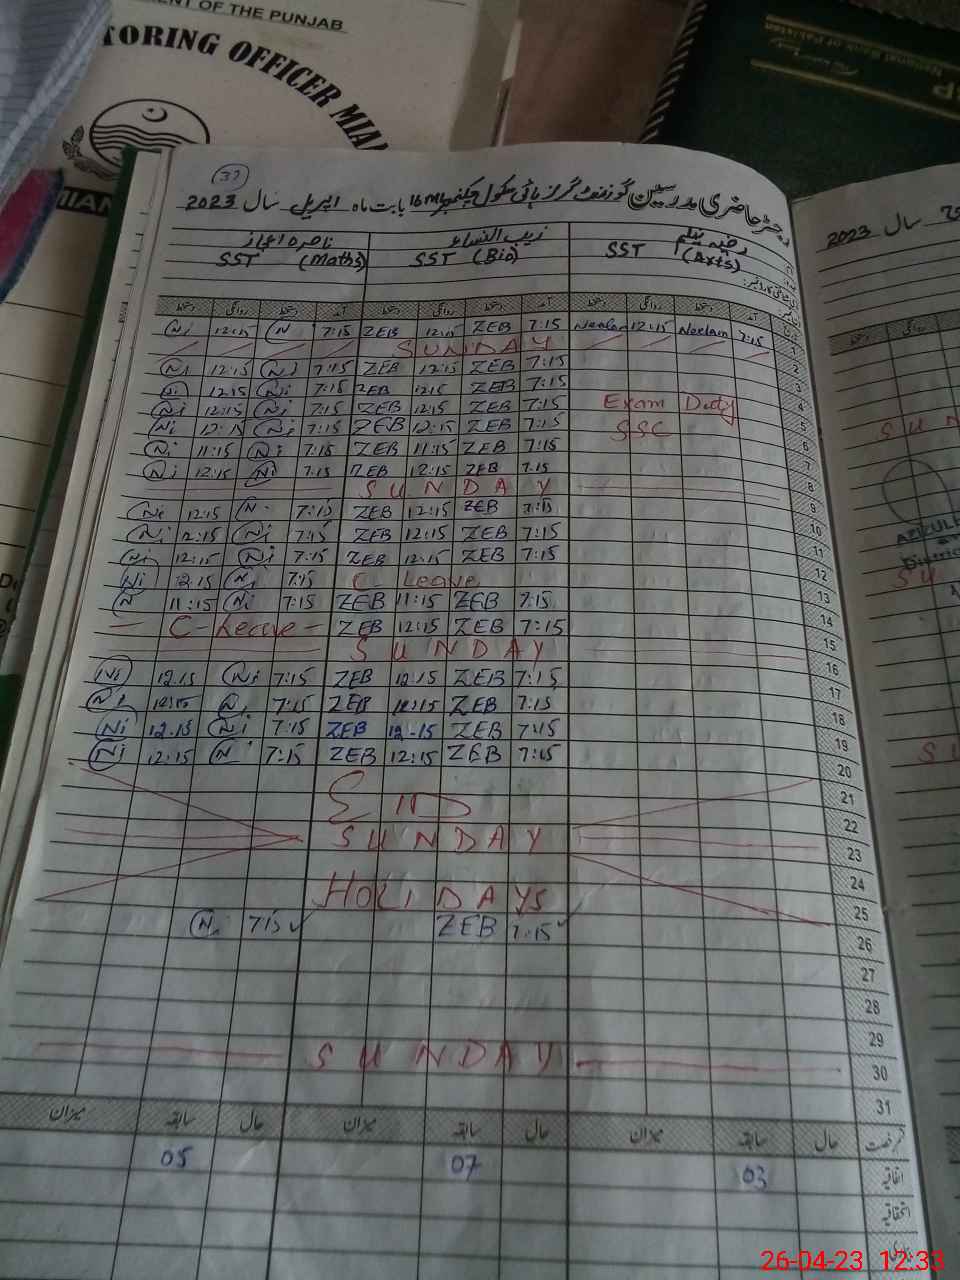 NT OF THE PUNJAB
TORING OFFICER MIAN
MIAN
National Bank of Pakistan
BP
(37)
رجسٹر حاضری مدرسین گورنمنٹ گرلز ہائی سکول چکنمبر 16ML بابت ماہ اپریل سال 2023
سال 2023
زیب النساء
SST (Arts) SST (Bio) SST (Maths)
آمد دستخط روانگی دستخط
Ni 12:15 N 7:15 ZEB 12:15 ZEB 7:15 Neelam 12:15 Neelam 7:15 1
SUNDAY 2
Ni 12:15 Ni 7:15 ZEB 12:15 ZEB 7:15 3
Ni 12:15 Ni 7:15 ZEB 12:15 ZEB 7:15 4
Ni 12:15 Ni 7:15 ZEB 12:15 ZEB 7:15 Exam Duty 5
Ni 12:15 Ni 7:15 ZEB 12:15 ZEB 7:15 SSC 6
Ni 11:15 Ni 7:15 ZEB 11:15 ZEB 7:15 7
Ni 12:15 Ni 7:15 ZEB 12:15 ZEB 7:15 8
SUNDAY 9
Ni 12:15 N 7:15 ZEB 12:15 ZEB 7:15 10
Ni 12:15 Ni 7:15 ZEB 12:15 ZEB 7:15 11
Ni 12:15 Ni 7:15 ZEB 12:15 ZEB 7:15 12
Ni 12.15 Ni 7:15 C- Leave 13
N 11:15 Ni 7:15 ZEB 11:15 ZEB 7:15 14
C-Leave ZEB 12:15 ZEB 7:15 15
SUNDAY 16
Ni 12.15 Ni 7:15 ZEB 12.15 ZEB 7:15 17
Ni 12:15 N 7:15 ZEB 12:15 ZEB 7:15 18
Ni 12.15 Ni 7:15 ZEB 12-15 ZEB 7:15 19
Ni 12:15 N 7:15 ZEB 12:15 ZEB 7:15 20
EID 21
22
SUNDAY 23
24
HOLIDAYS 25
N. 7:15 ZEB 7:15 26
27
28
29
SUNDAY 30
31
حال سابقہ میزان حال سابقہ میزان حال سابقہ میزان
اتفاقیہ 03 07 05
استحقاقیہ
SUN
AZIZULL
District
SU
SU
26-04-23 12:33